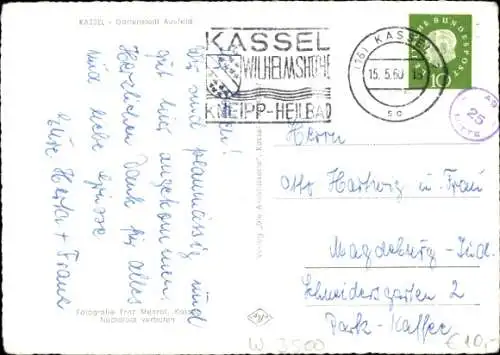 KASSEL - Gartenstadt Auefeld
KASSEL
WILHELMSHÖHE
KNEIPP-HEILBAD
(16) KASSEL
15.5.60
sc
DEUTSCHE BUNDESPOST
10
25
MITTE
Wir sind planmässig und
gut hier angekommen.
Herzlichen Dank für alles
und liebe Grüsse
Eure Herta + Franz
Herrn
Otto Hartwig u. Frau
Magdeburg-Süd.
Schneidersgarten 2
Park-Kaffee
Fotografie Franz Kassel
Nachdruck verboten
W 3500
€10,-